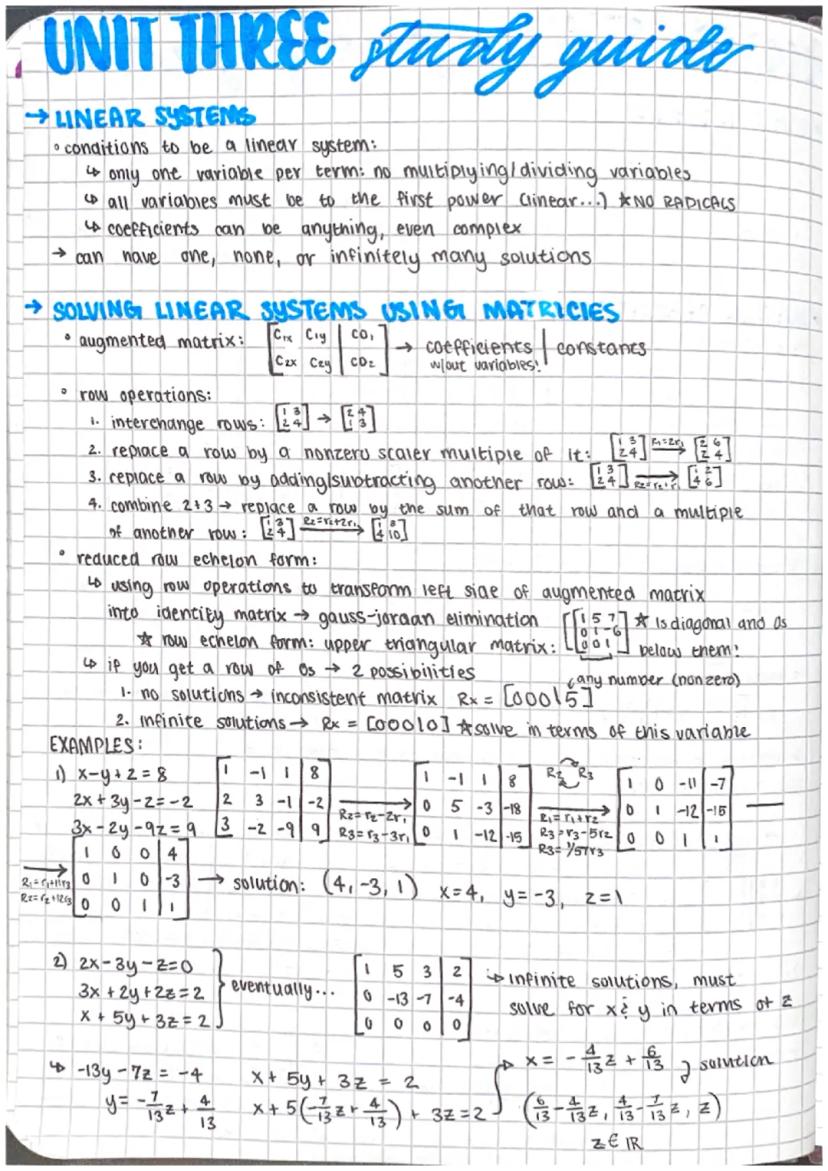 UNIT THREE study guide
→ LINEAR SYSTEMS
◦ conditions to be a linear system:
↳ only one variable per term: no multiplying/dividing variables
↳ all variables must be to the first power (linear...) ★NO RADICALS
↳ coefficients can be anything, even complex
→ can have one, none, or infinitely many solutions
→ SOLVING LINEAR SYSTEMS USING MATRICIES
• augmented matrix: [C1x C1y | CO1; C2x C2y | CO2] → coefficients | constants
w/out variables!
• row operations:
1. interchange rows: [1 3; 2 4] → [2 4; 1 3]
2. replace a row by a nonzero scaler multiple of it: [1 3; 2 4] R1=2r1 → [2 6; 2 4]
3. replace a row by adding/subtracting another row: [1 3; 2 4] R2=r2+r1 → [1 2; 4 6]
4. combine 2+3 → replace a row by the sum of that row and a multiple
of another row: [1 3; 2 4] R2=r2+2r1 → [1 3; 4 10]
• reduced row echelon form:
↳ using row operations to transform left side of augmented matrix
into identity matrix → gauss-jordan elimination
★ row echelon form: upper triangular matrix: [1 5 7; 0 1 -6; 0 0 1] ★ 1s diagonal and 0s
below them!
↳ if you get a row of 0s → 2 possibilities
any number (nonzero)
1. no solutions → inconsistent matrix Rx = [000|5]
2. infinite solutions → Rx = [000|0] ★solve in terms of this variable
EXAMPLES:
1) x-y+z=8
2x+3y-z=-2
3x-2y-9z=9
[1 -1 1 | 8; 2 3 -1 | -2; 3 -2 -9 | 9]
R2=r2-2r1
R3=r3-3r1
[1 -1 1 | 8; 0 5 -3 | -18; 0 1 -12 | -15]
R2 R3
R1=r1+r2
R3=r3-5r2
R3=1/57r3
[1 0 -11 | -7; 0 1 -12 | -15; 0 0 1 | 1]
R1=r1+11r3
R2=r2+12r3
[1 0 0 | 4; 0 1 0 | -3; 0 0 1 | 1] → solution: (4,-3,1) x=4, y=-3, z=1
2) 2x-3y-z=0
3x+2y+2z=2
x+5y+3z=2
eventually...
[1 5 3 | 2; 0 -13 -7 | -4; 0 0 0 | 0]
↳ infinite solutions, must
solve for x & y in terms of z
↳ -13y-7z=-4
y=-7/13z+4/13
x+5y+3z=2
x+5(-7/13z+4/13)+3z=2
x=-4/13z+6/13 } solution
(6/13-4/13z, 4/13-7/13z, z)
z∈ℝ